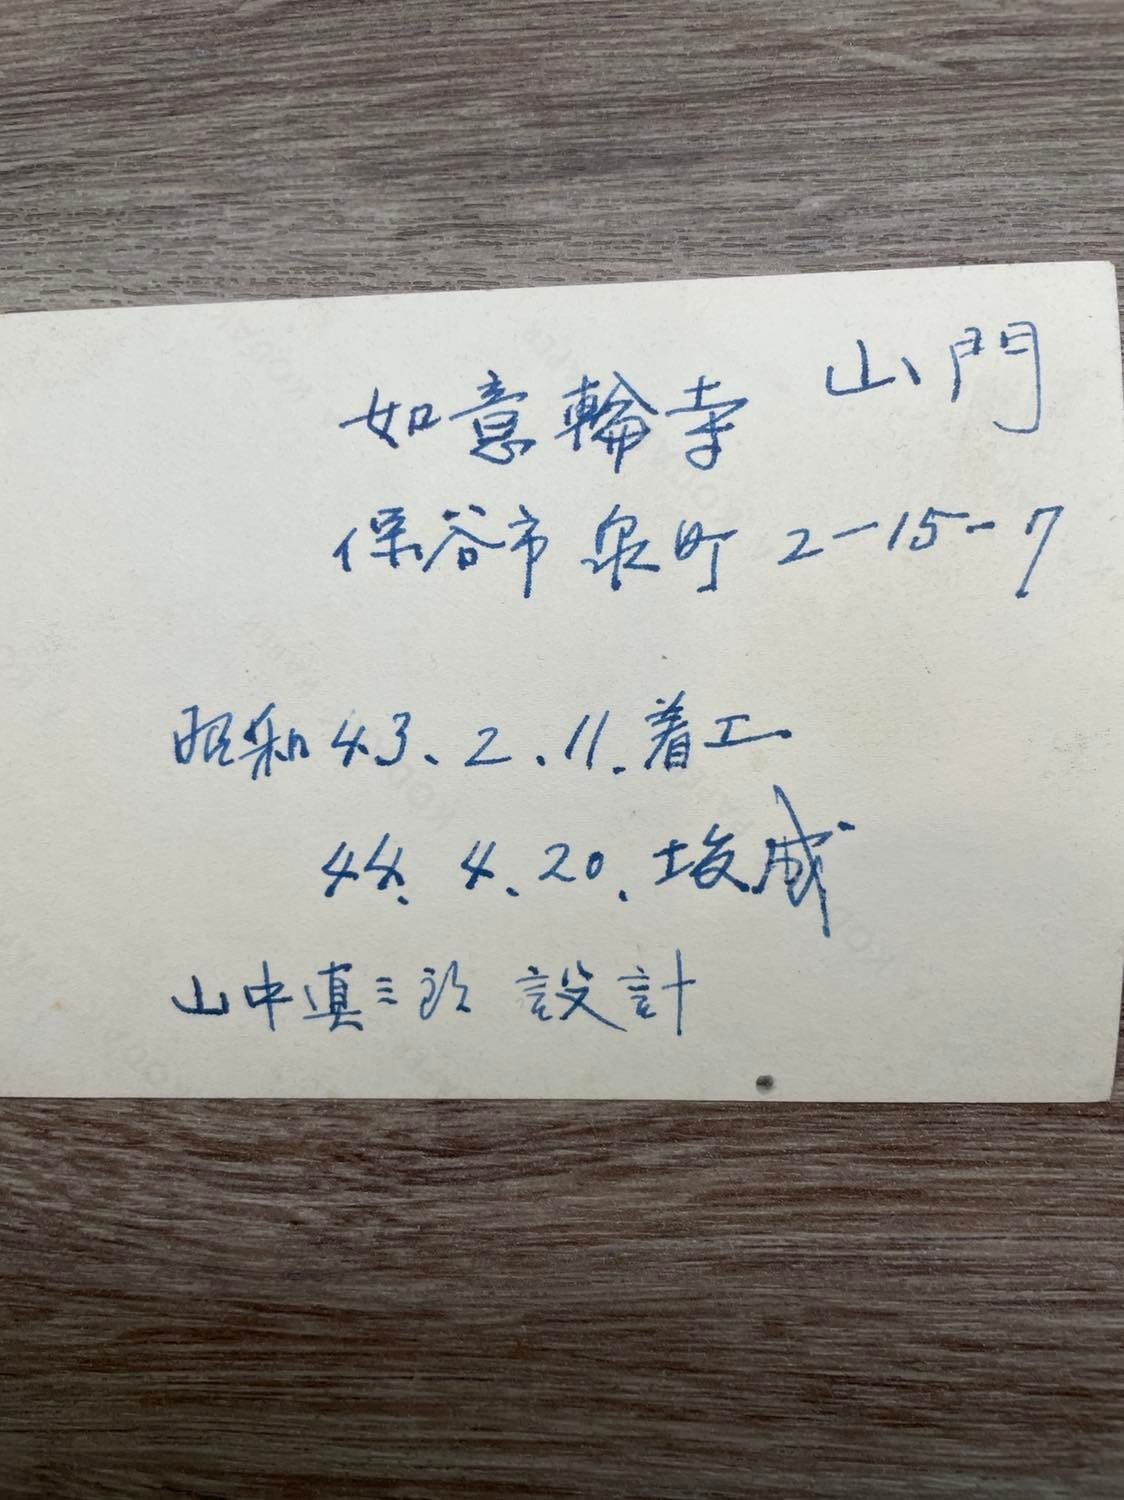 如意輪寺 山門
保谷市 泉町 2-15-7
昭和43.2.11.着工
44.4.20.竣成
山中真三郎 設計